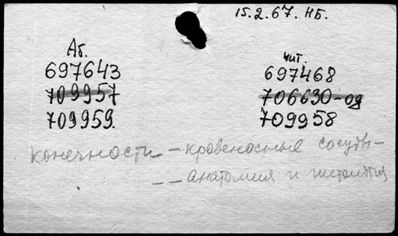 15.2.67. НБ.
Аб. чит.
697643 697468
709957 706630-од
709959. 709958
конечности - кровеносные сосуды -
-- анатомия и гистология